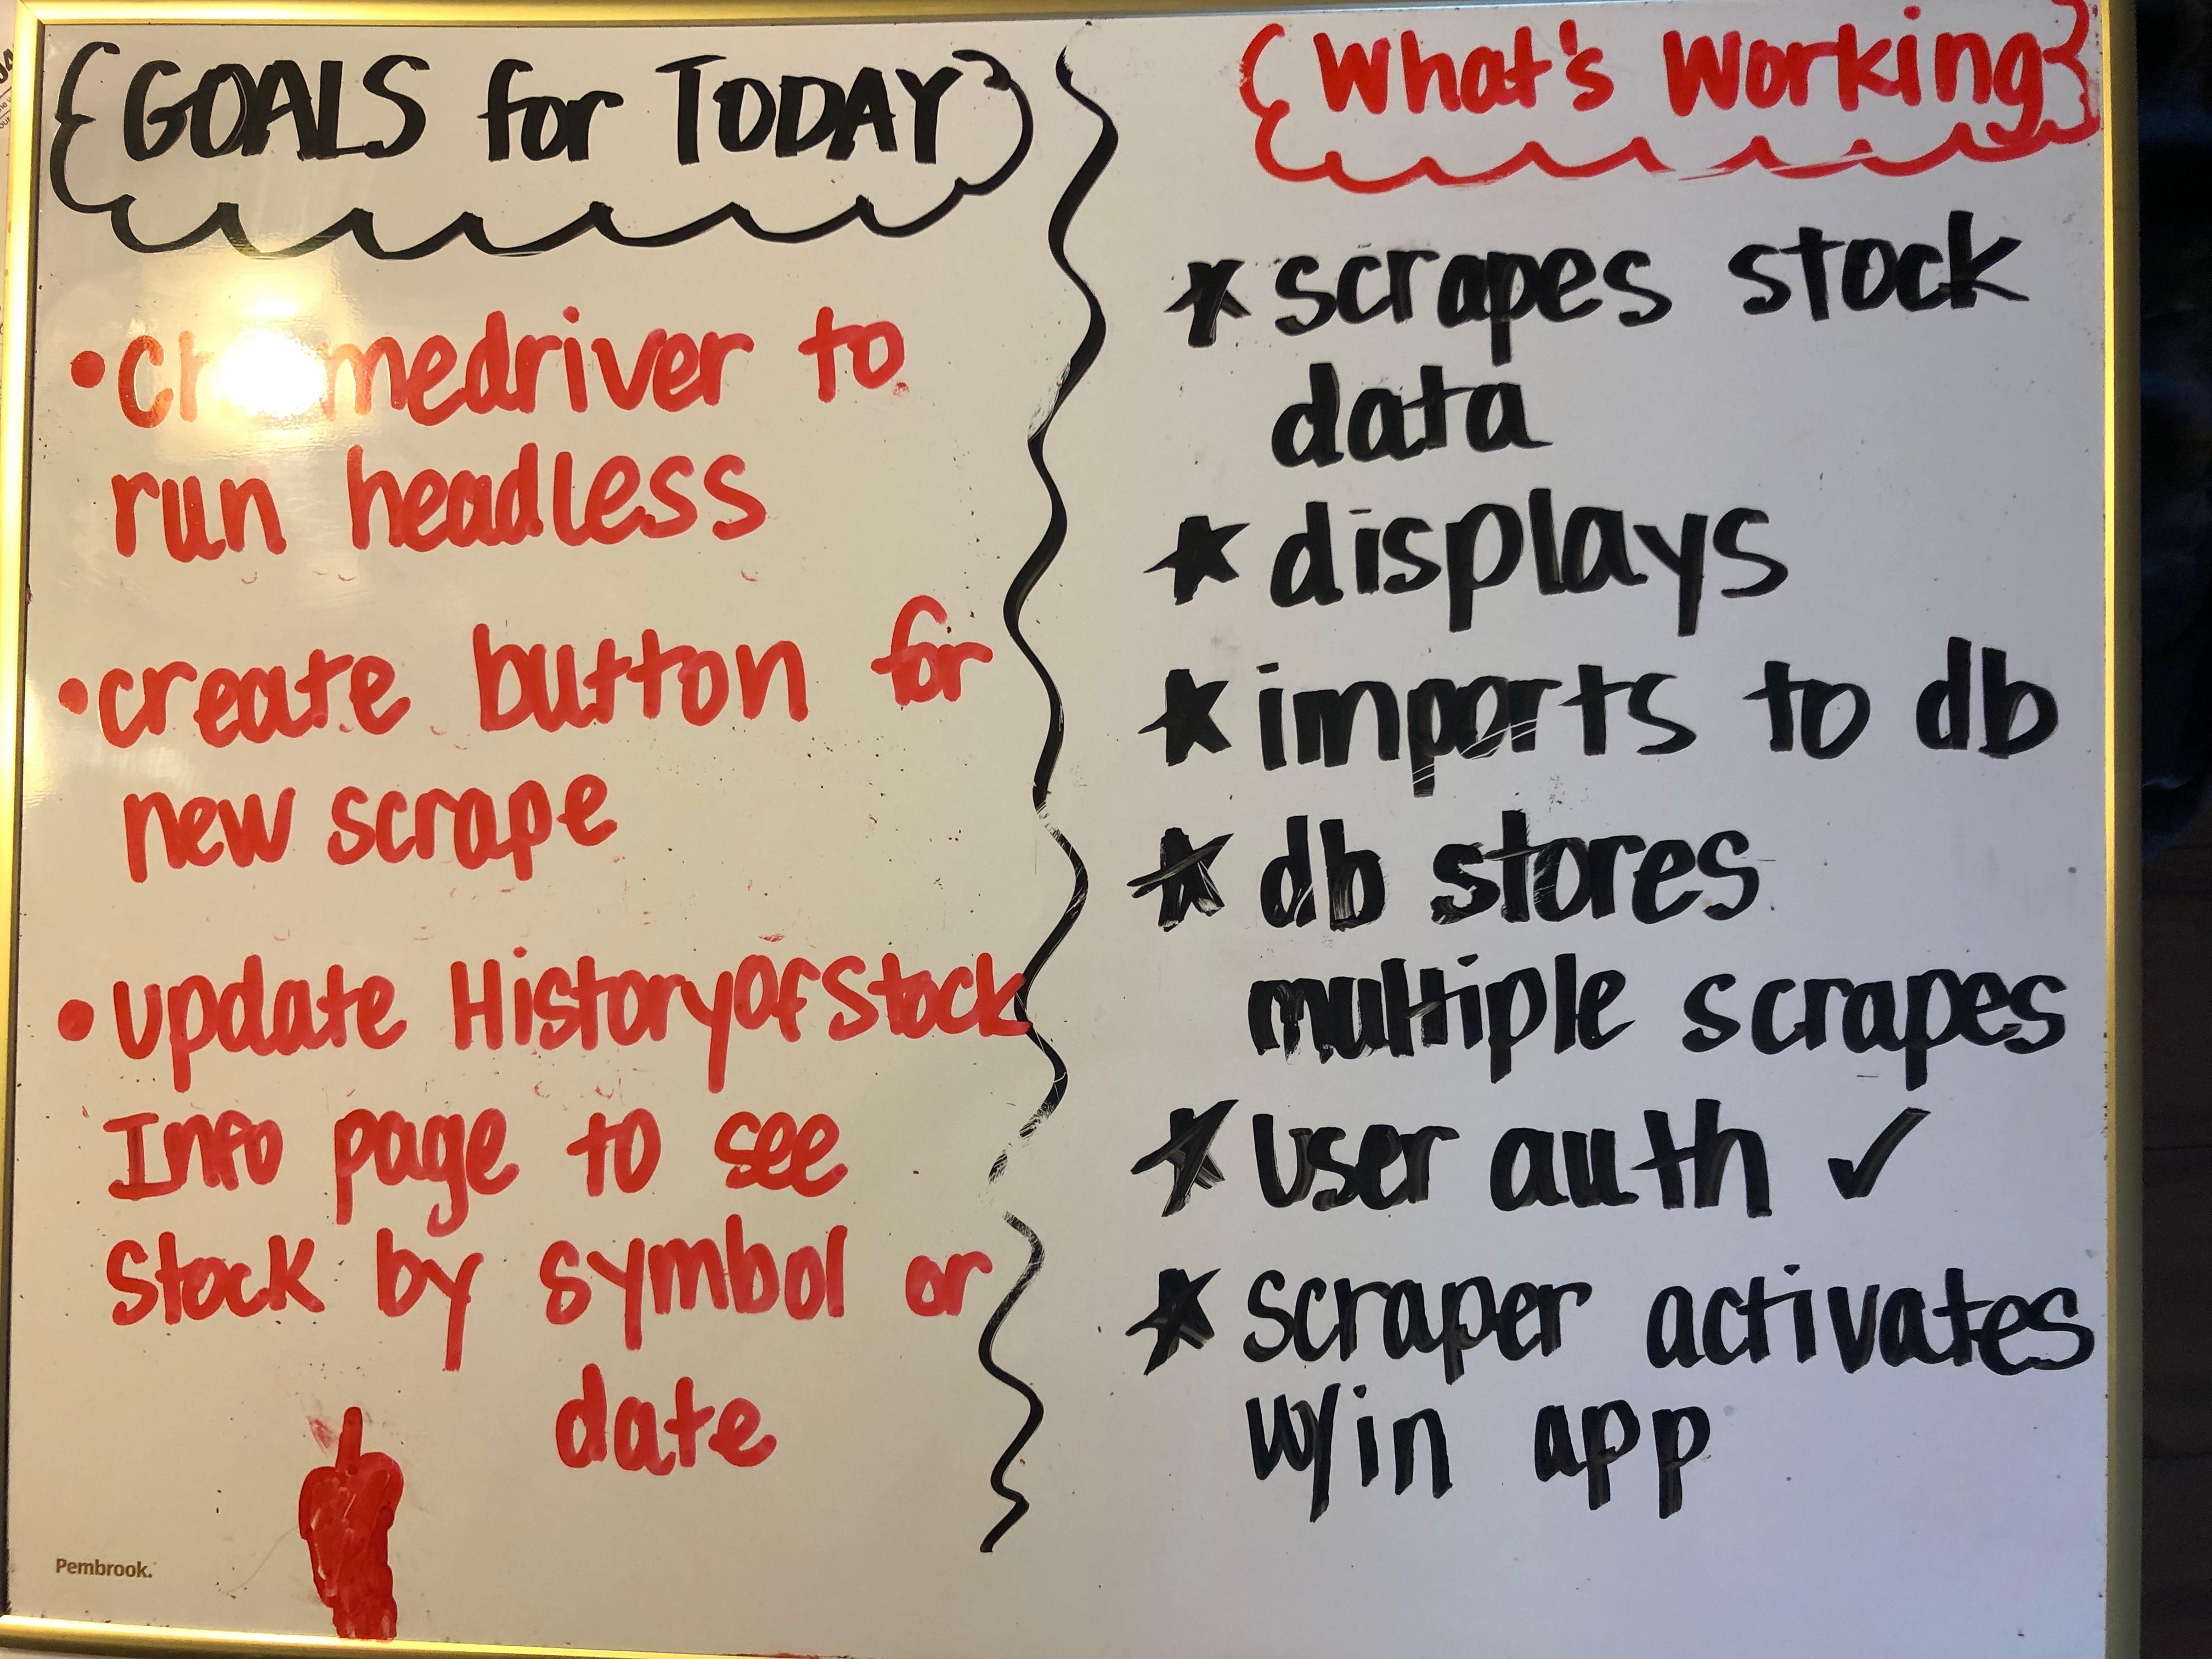 GOALS for TODAY
• chromedriver to
run headless
• create button for
new scrape
• update HistoryofStock
Info page to see
stock by symbol or
date
Pembrook.
What's Working
* scrapes stock
data
* displays
* imports to db
* db stores
multiple scrapes
* user auth ✓
* scraper activates
w/in app